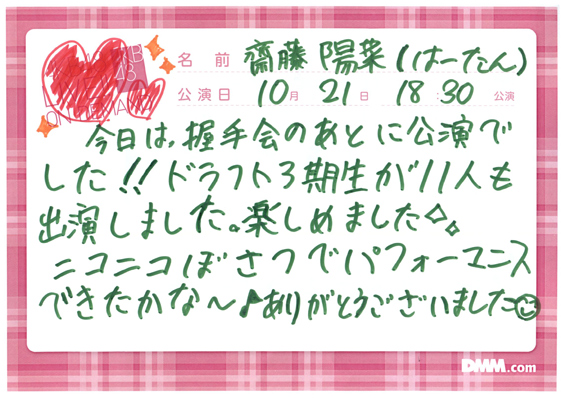 名前 齋藤陽菜(はーたん)
公演日 10月 21日 18:30 公演
今日は、握手会のあとに公演で
した!!ドラフト3期生が11人も
出演しました。楽しめました✧
ニコニコぼさつでパフォーマンス
できたかな〜♪ありがとうございました☺
DMM.com